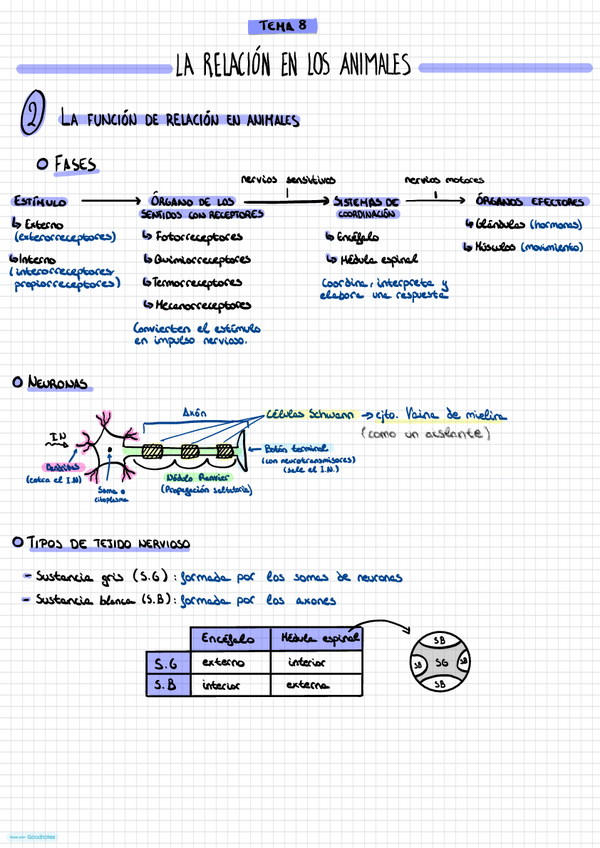 TEMA 8
LA RELACIÓN EN LOS ANIMALES
2 LA FUNCIÓN DE RELACIÓN EN ANIMALES
FASES
nervios sensitivos
nervios motores
ESTÍMULO
ÓRGANO DE LOS
SENTIDOS CON RECEPTORES
SISTEMAS DE
COORDINACIÓN
ÓRGANOS EFECTORES
Externo
(exterorreceptores)
Interno
(interorreceptores
propiorreceptores)
Fotorreceptores
Quimiorreceptores
Termorreceptores
Mecanorreceptores
Convierten el estímulo
en impulso nervioso.
Encéfalo
Médula espinal
Coordina, interpreta y
elabora una respuesta
Glándulas (hormonas)
Músculos (movimiento)
NEURONAS
IN
Axón
Células Schwann → cjto. Vaina de mielina
(como un aislante)
Dendritas
(entra el I.N)
Soma o
citoplasma
Nódulo Ranvier
(Propagación saltatoria)
Botón terminal
(con neurotransmisores)
(sale el I.N.)
TIPOS DE TEJIDO NERVIOSO
- Sustancia gris (S.G): formada por los somas de neuronas
- Sustancia blanca (S.B): formada por los axones
Encéfalo Médula espinal
S.G externo interior
S.B interior externa
SB
SB SG SB
SB
Goodnotes